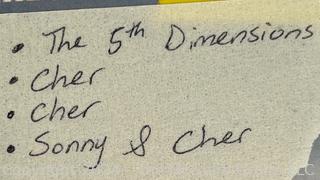 • The 5th Dimensions
• Cher
• Cher
• Sonny & Cher
LLC